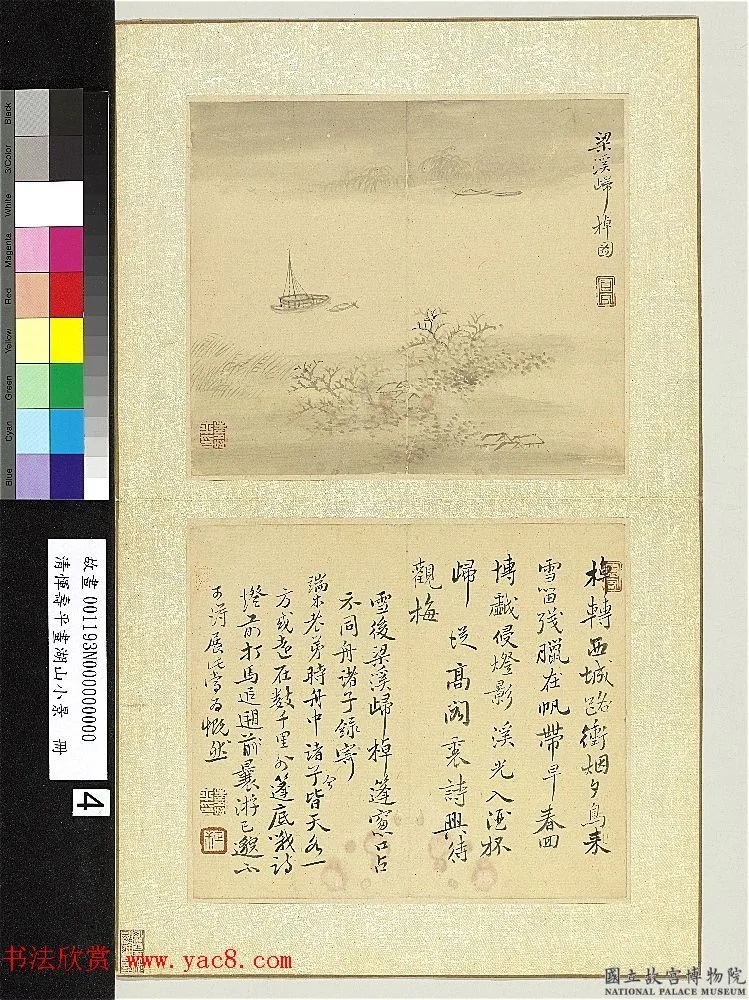 Black
3/Color
White
Magenta
Red
Yellow
Green
Cyan
Blue
梁溪歸棹圖
棹轉西城路衝烟夕鳥来
雪留殘臘在帆帶早春回
博戲侵燈影溪光入酒杯
歸從高閣裏詩興待
觀梅
雪後梁溪歸棹蓬窓口占
不同舟諸子録寄
端木老弟時舟中諸子今皆天各一
方或遠在數千里外篷底戰詩
燈前打馬追迴前曩游已邈不
可得展此當爲慨然
故畫 001193N000000000
清惲壽平畫湖山小景 冊
4
书法欣赏 www.yac8.com
國立故宮博物院
NATIONAL PALACE MUSEUM